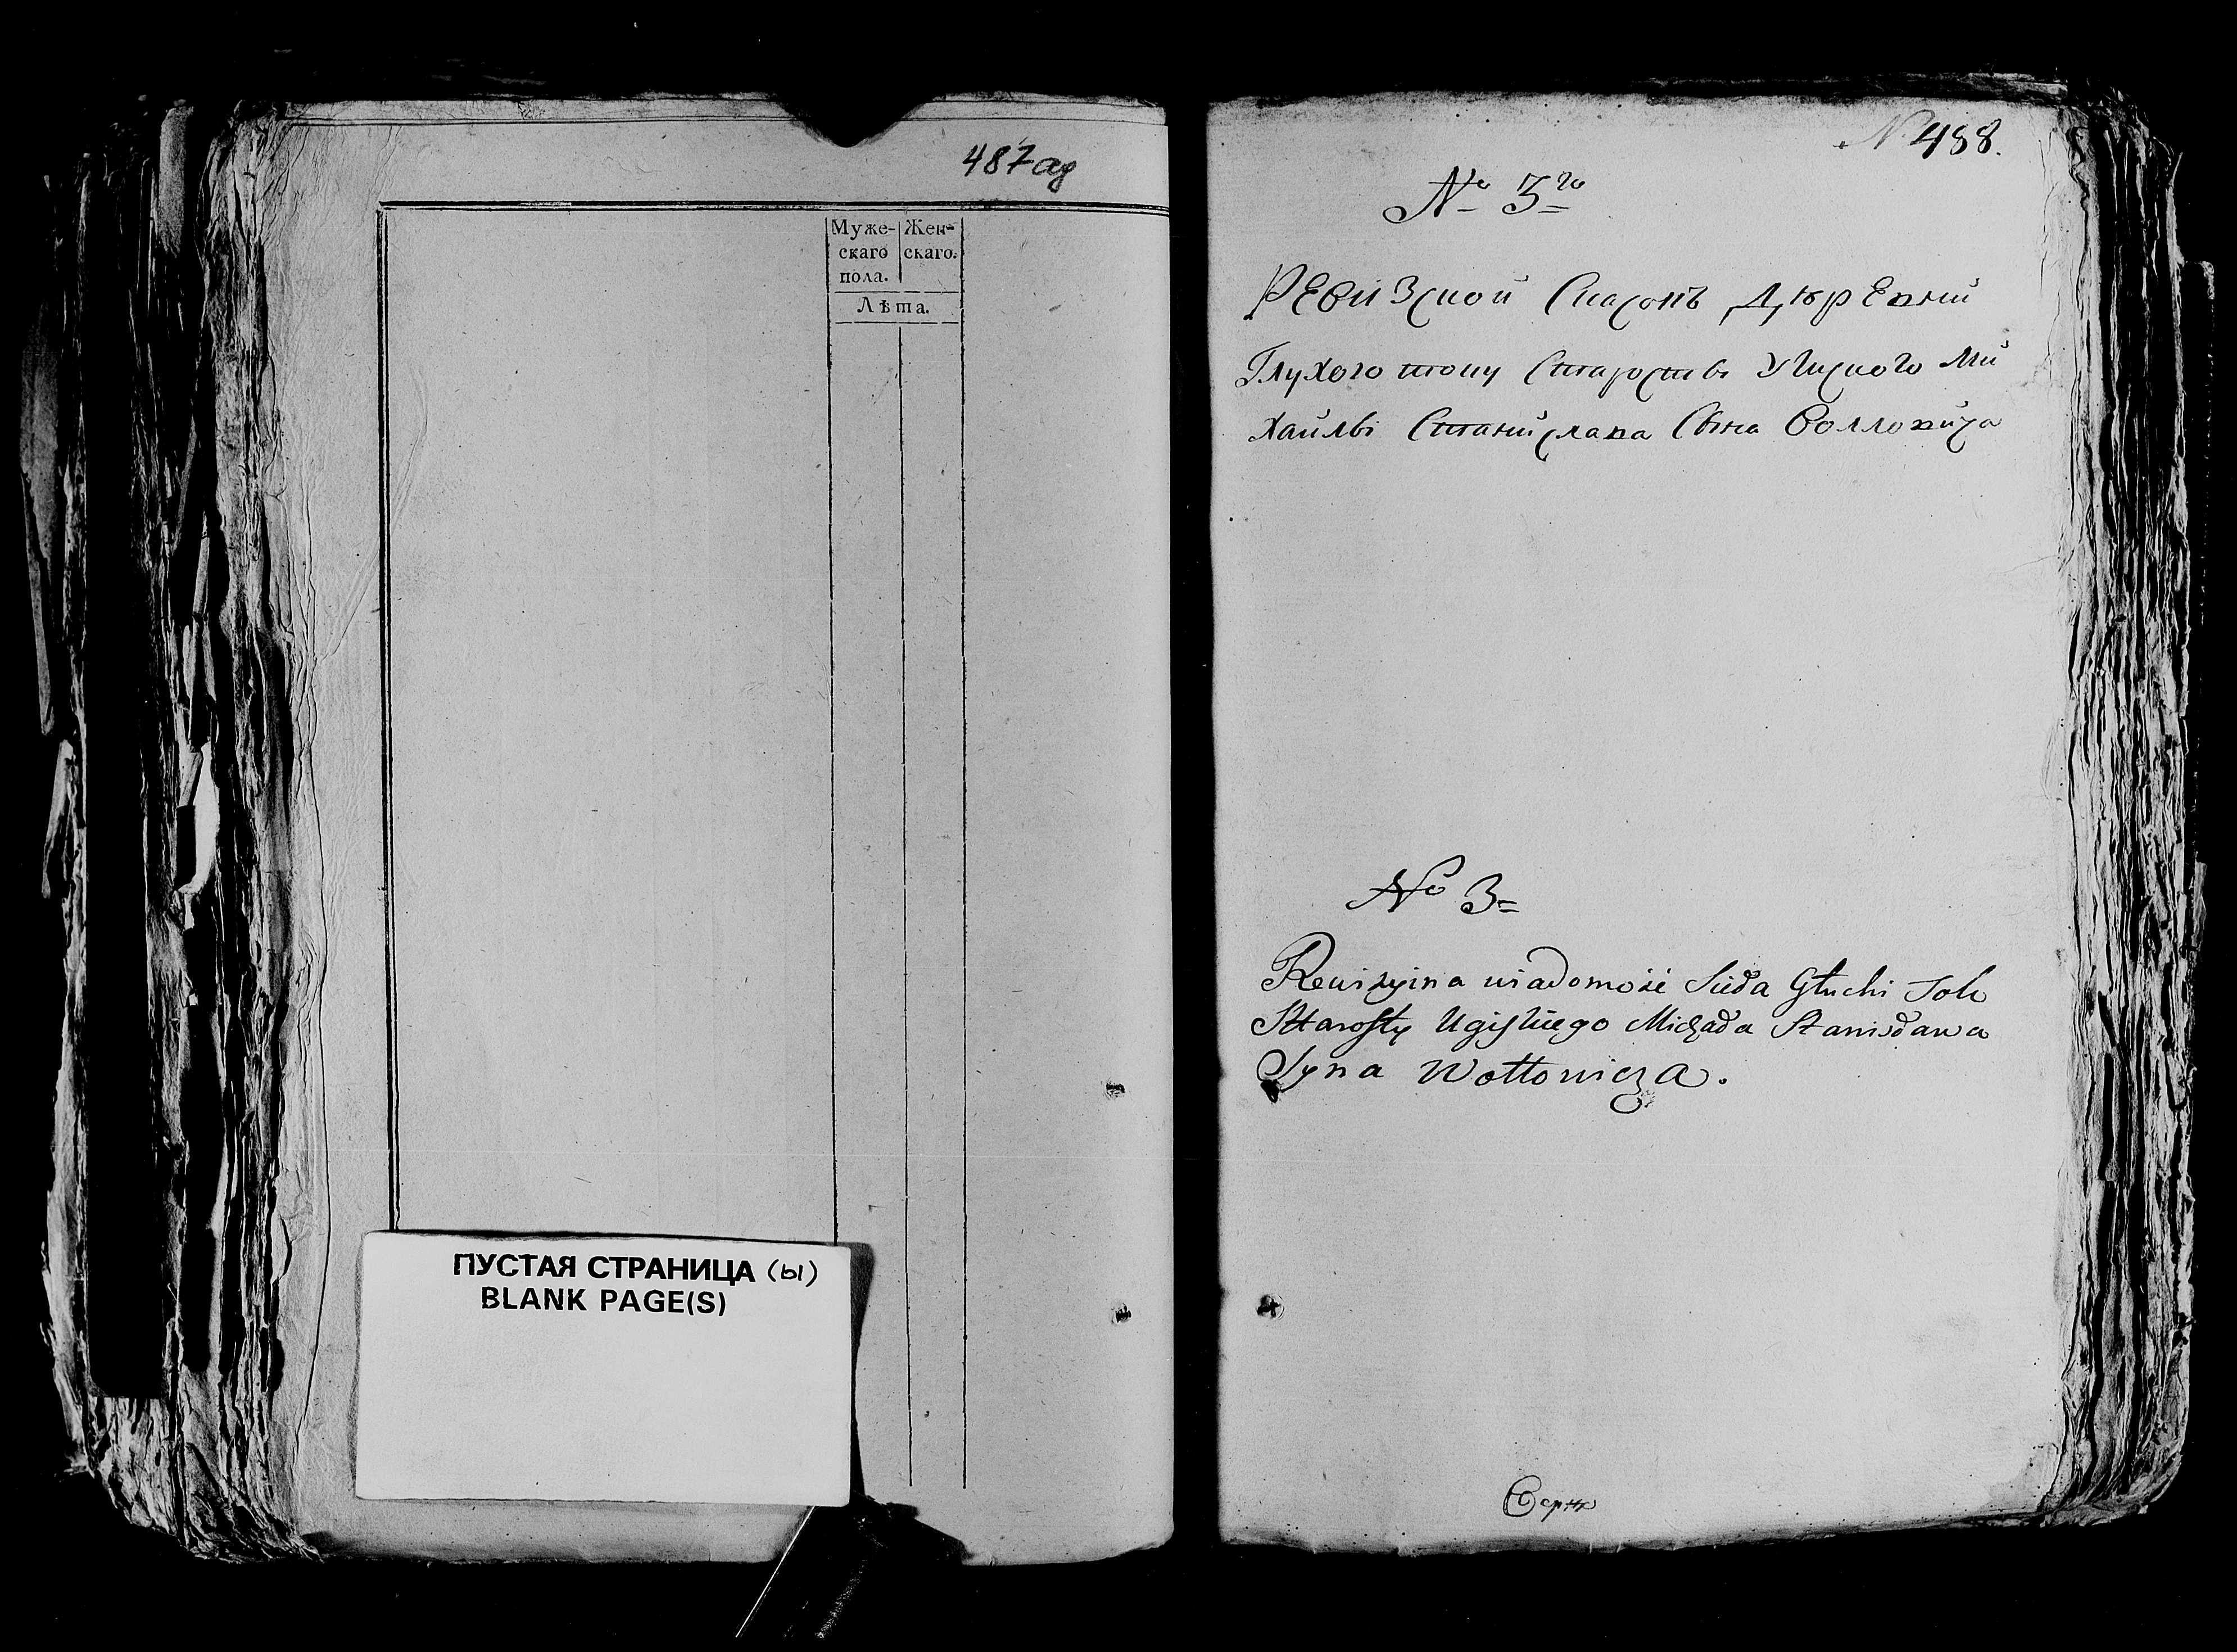 487ад
Муже- Жен-
скаго скаго.
пола.
Лѣта.
ПУСТАЯ СТРАНИЦА (ы)
BLANK PAGE(S)
N 488.
№ 3го
РЕвизской Сказокъ Дѣревни
Глухого току Старосты Угиского Ми
хаилы Станислава СынаВолловича
No 3
Rewizyina wiadomość Sieła Głuchi Tok
Starosty Ugiskiego Michała Stanisława
Syna Wołłowicza.